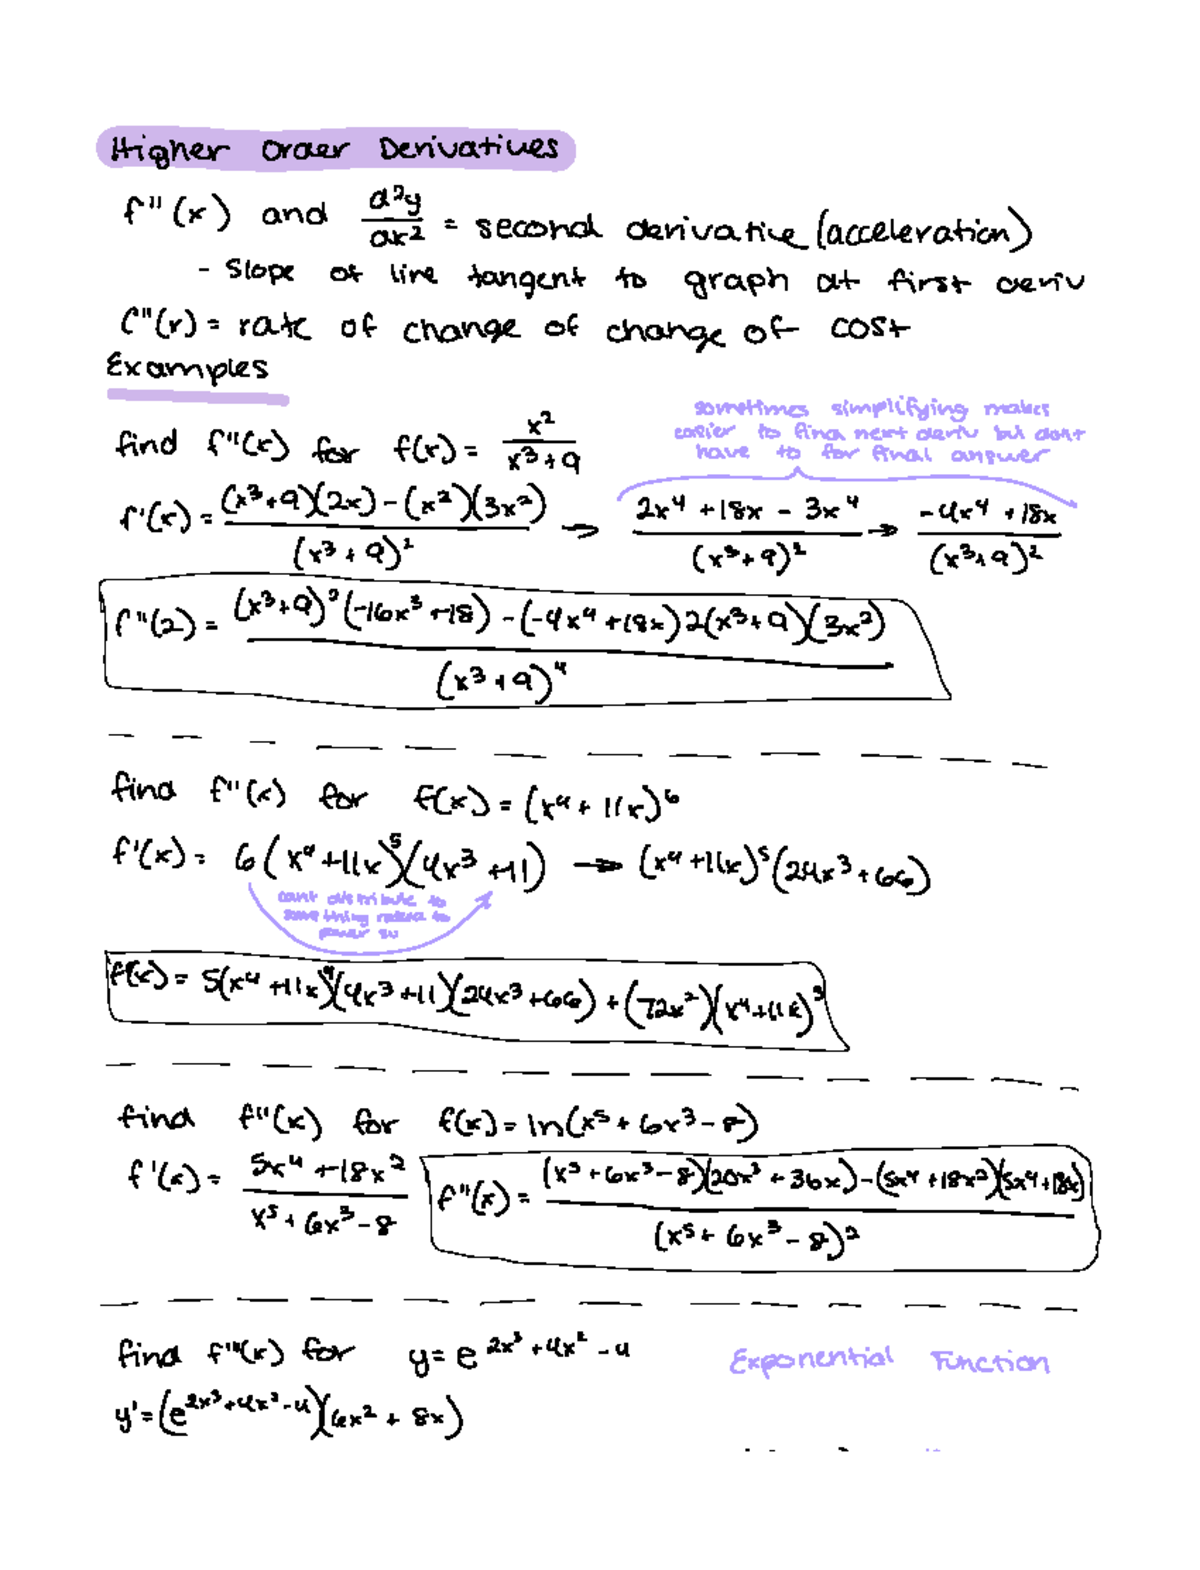 Higher Order Derivatives
f''(x) and d²y/dx² = second derivative (acceleration)
- slope of line tangent to graph at first deriv
C''(x) = rate of change of change of cost
Examples
sometimes simplifying makes
easier to find next deriv but dont
have to for final answer
find f''(x) for f(x) = x²/(x³+9)
f'(x) = (x³+9)(2x) - (x²)(3x²) / (x³+9)² → 2x⁴ + 18x - 3x⁴ / (x³+9)² → -4x⁴ + 18x / (x³+9)²
f''(2) = (x³+9)²(-16x³+18) - (-4x⁴+18x)2(x³+9)(3x²) / (x³+9)⁴
find f''(x) for f(x) = (x⁴ + 11x)⁶
f'(x) = 6(x⁴+11x)⁵(4x³+11) → (x⁴+11x)⁵(24x³+66)
cant distribute to
something raised to
power so
f(x) = 5(x⁴+11x)⁴(4x³+11)(24x³+66) + (72x²)(x⁴+11x)⁵
find f''(x) for f(x) = ln(x⁵ + 6x³ - 8)
f'(x) = 5x⁴ + 18x² / x⁵ + 6x³ - 8
f''(x) = (x⁵+6x³-8)(20x³+36x) - (5x⁴+18x²)(5x⁴+18x) / (x⁵+6x³-8)²
find f'''(x) for y = e^(2x³+4x²-4)
Exponential Function
y' = (e^(2x³+4x²-4))(6x² + 8x)